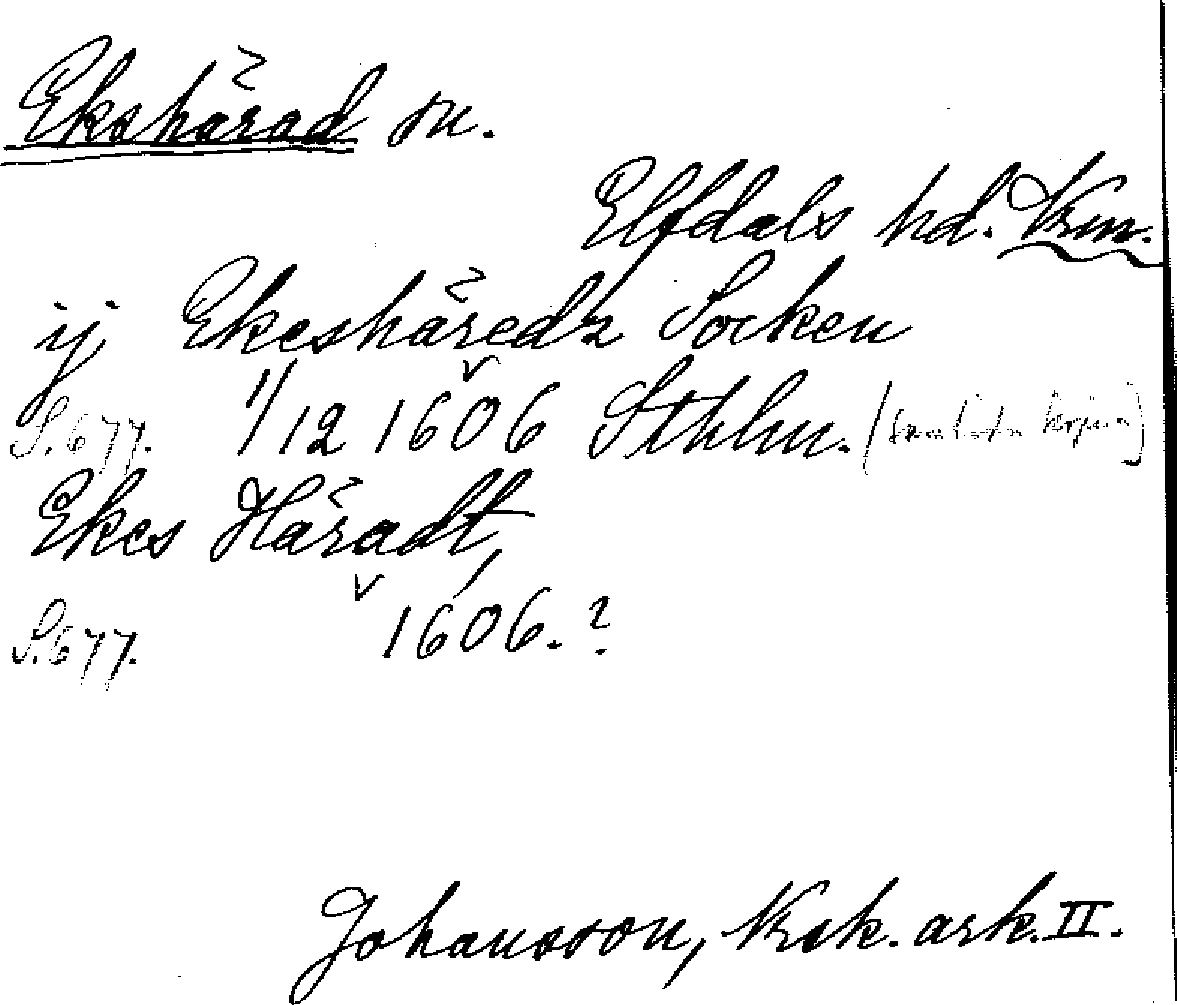 Ekshärad sn.
Elfdals hd. Vrm.
ij Ekeshäredz Socken
S. 677. 1/12 1606 Sthlm. (samtida kopia)
Ekes Häradt,
S. 677. 1606. ?
Johansson, Nrsk. ark. II.